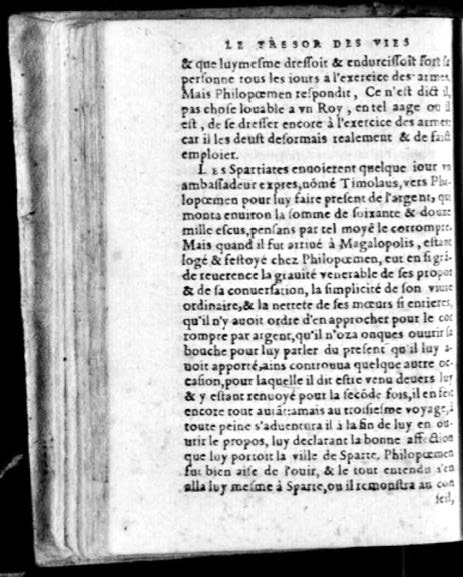 LE TRESOR DES VIES
& que luymesme dressoit & endurcissoit fort sa
personne tous les iours à l'exercice des armes,
Mais Philopœmen respondit, Ce n'est dict il,
pas chose louable a vn Roy, en tel aage ou il
est, de se dresser encore à l'exercice des armes
car il les deust desormais realement & de faict
emploier.
LES Spartiates enuoierent quelque iour vn
ambassadeur expres, nõmé Timolaus, vers Phi-
lopœmen pour luy faire present de l'argent, qui
monta enuiron la somme de soixante & douze
mille escus, pensans par tel moyẽ le corrompre.
Mais quand il fut arriué à Magalopolis, estant
logé & festoyé chez Philopœmen, eut en si grã-
de reuerence la grauité venerable de ses propos
& de sa conuersation, la simplicité de son viure
ordinaire, & la nettete de ses mœurs si entieres,
qu'il n'y auoit ordre d'en approcher pour le cor
rompre par argent, qu'il n'oza onques ouurir sa
bouche pour luy parler du present qu'il luy a-
uoit apporté, ains controuua quelque autre oc-
casion, pour laquelle il dit estre venu deuers luy
& y estant renuoyé pour la secõde fois, il en feit
encore tout autãt: amais au troisiesme voyage, à
toute peine s'aduentura il à la fin de luy en ou-
urir le propos, luy declarant la bonne affection
que luy portoit la ville de Sparte. Philopœmen
fut bien aise de l'ouir, & le tout entendu s'en
alla luy mesme à Sparte, ou il remonstra au con
seil,